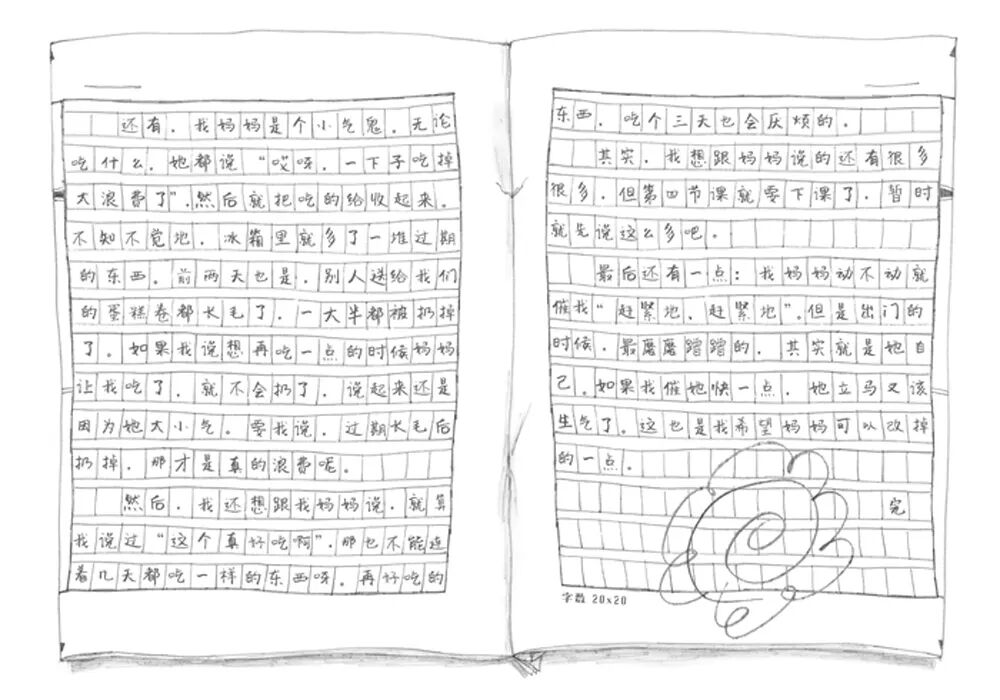 还有，我妈妈是个小气鬼。无论
吃什么，她都说“哎呀，一下子吃掉
太浪费了”，然后就把吃的给收起来。
不知不觉地，冰箱里就多了一堆过期
的东西。前两天也是，别人送给我们
的蛋糕卷都长毛了，一大半都被扔掉
了。如果我说想再吃一点的时候妈妈
让我吃了，就不会扔了，说起来还是
因为她太小气。要我说，过期长毛后
扔掉，那才是真的浪费呢。
然后，我还想跟我妈妈说，就算
我说过“这个真好吃啊”，那也不能连
着几天都吃一样的东西呀，再好吃的
东西，吃个三天也会厌烦的。
其实，我想跟妈妈说的还有很多
很多，但第四节课就要下课了，暂时
就先说这么多吧。
最后还有一点：我妈妈动不动就
催我“赶紧地、赶紧地”，但是出门的
时候，最磨磨蹭蹭的，其实就是她自
己。如果我催她快一点，她立马又该
生气了。这也是我希望妈妈可以改掉
的一点。
完
字数 20×20